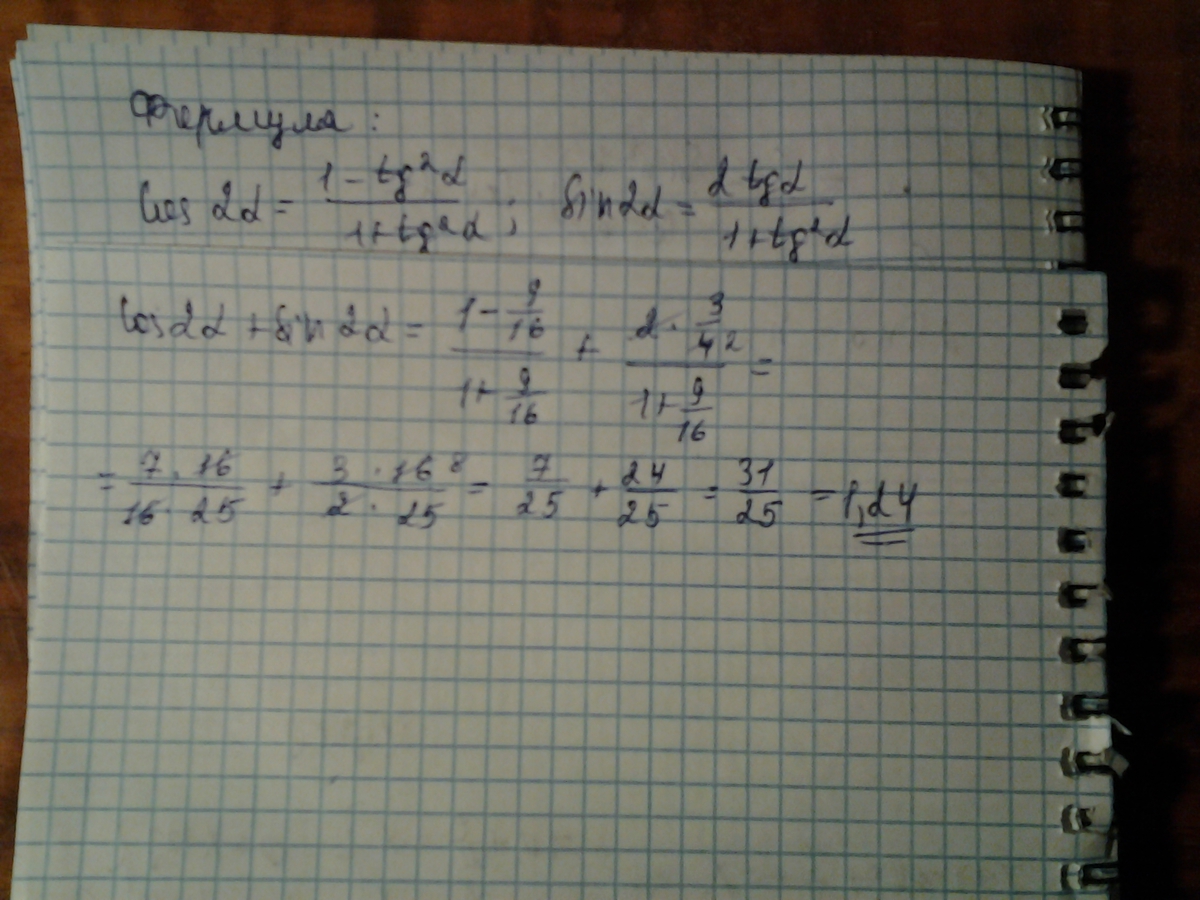 Формула:
cos 2α = (1 - tg²α)/(1 + tg²α) ; sin 2α = (2 tgα)/(1 + tg²α)
cos 2α + sin 2α = (1 - 9/16)/(1 + 9/16) + (2 · 3/4 2)/(1 + 9/16) =
= (7 · 16)/(16 · 25) + (3 · 16 8)/(2 · 25) = 7/25 + 24/25 = 31/25 = 1,24